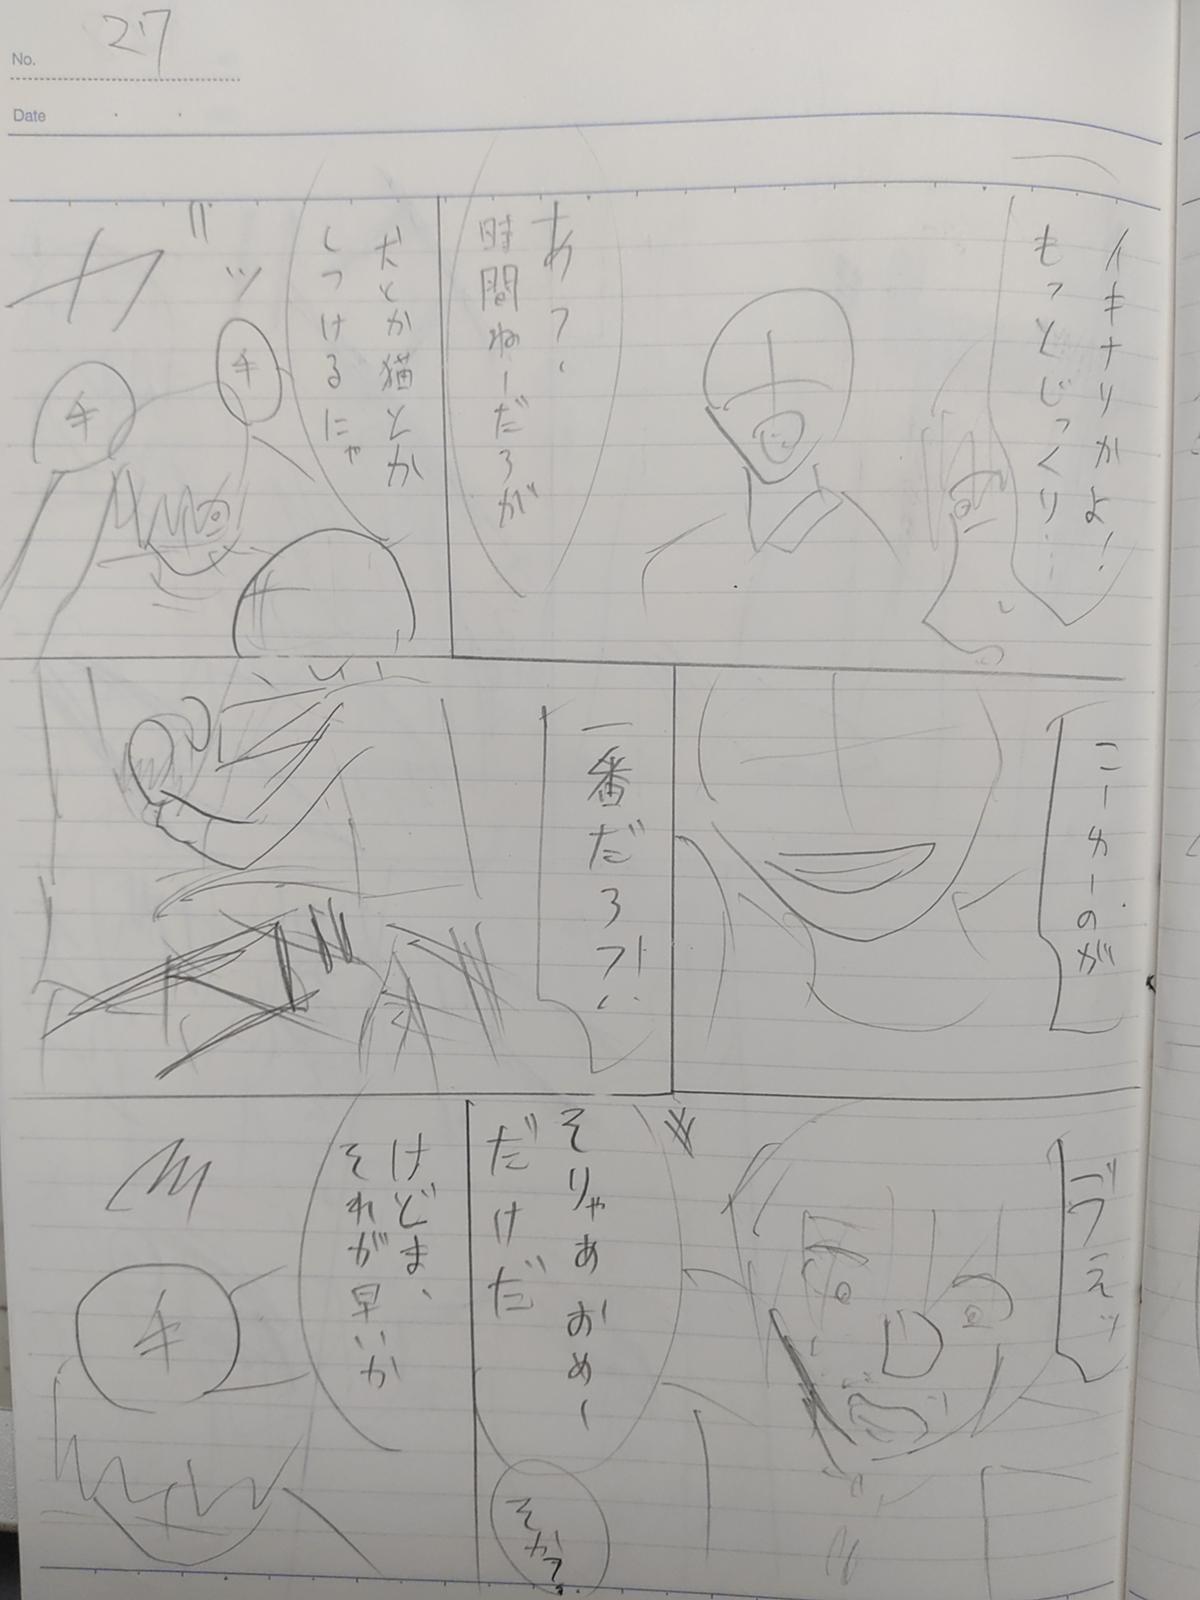 No. 27
Date
イキナリかよ!
もっとじっくり…
あ?
時間ねーだろが
犬とか猫とか
しつけるにゃ
ガッ
手
手
こーゆーのが
一番だろ?!
ゴラァッ
そりゃあおめー
だけだ
そか?
けどま、
それが早いか
手